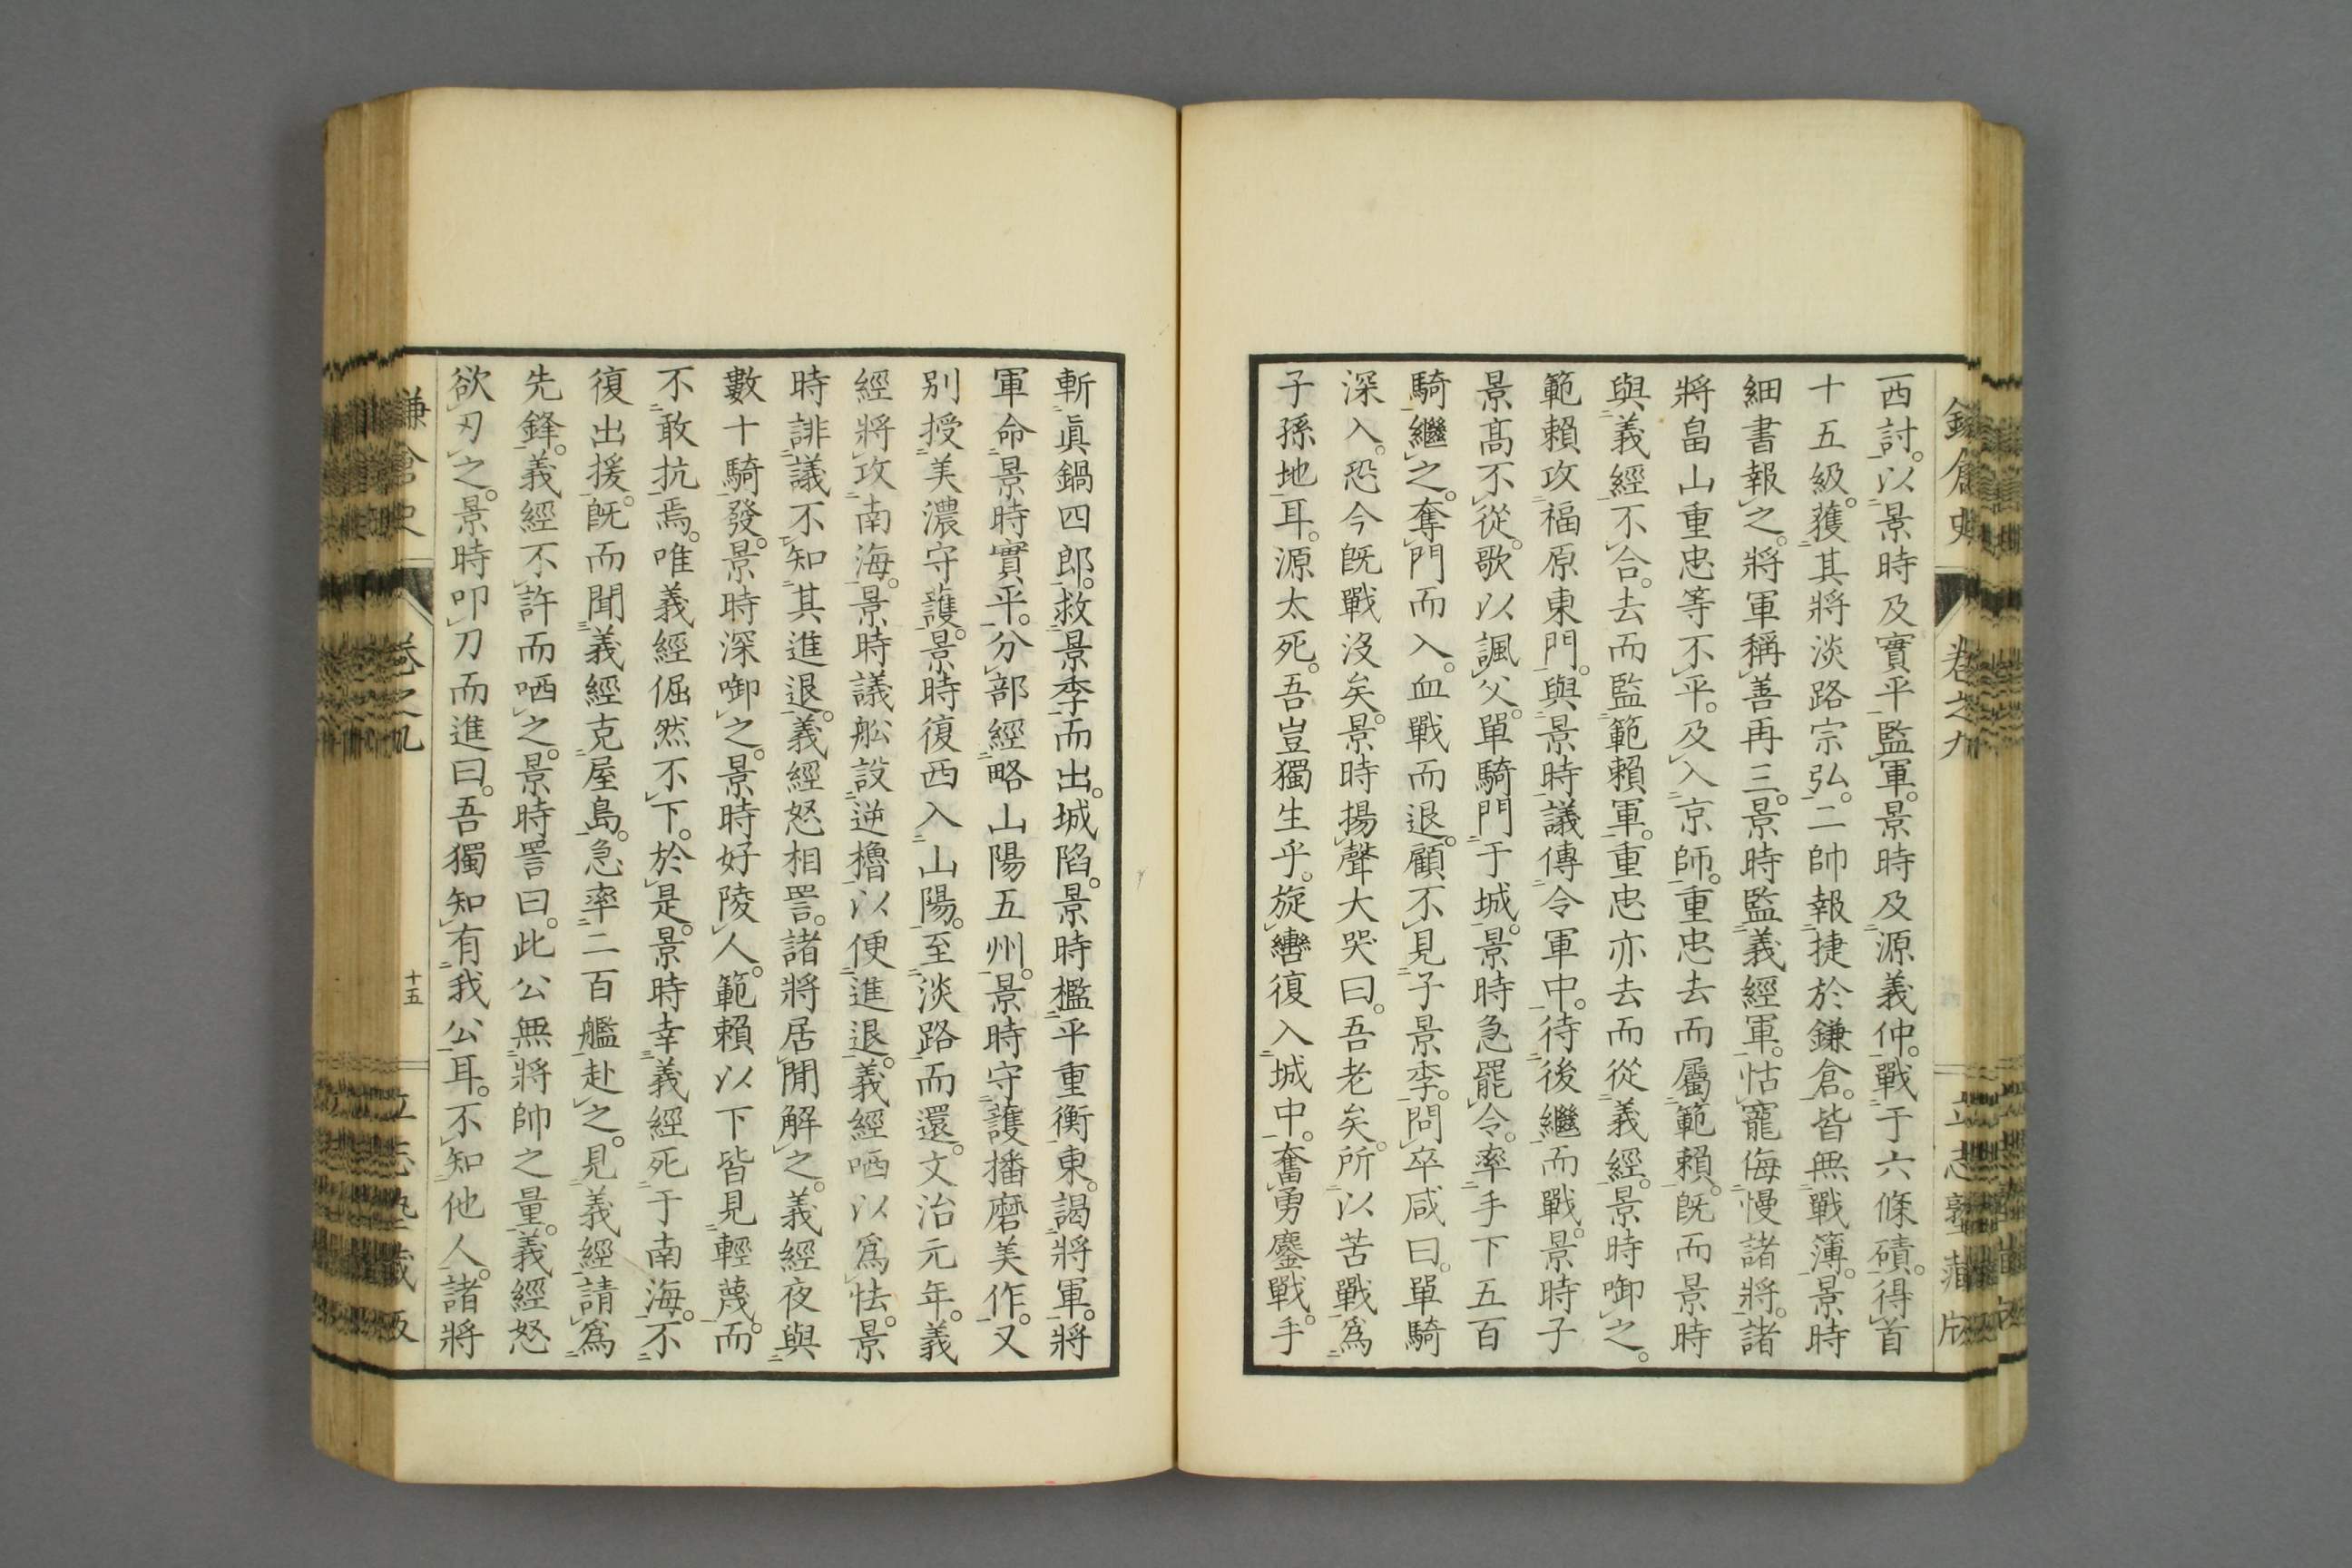 鎌倉史
卷之九
立志塾藏版
西討。以景時及實平監軍。景時及源義仲。戰于六條磧。得首
十五級。獲其將淡路宗弘。二帥報捷於鎌倉。皆無戰簿。景時
細書報之。將軍稱善再三。景時監義經軍。怙寵侮慢諸將。諸
將畠山重忠等不平。及入京師。重忠去而屬範賴。既而景時
與義經不合。去而監範賴軍。重忠亦去而從義經。景時啣之。
範賴攻福原東門。與景時議傳令軍中。待後繼而戰。景時子
景高不從。歌以諷父。單騎鬥于城。景時急罷令。率手下五百
騎繼之。奪門而入。血戰而退。顧不見子景季。問卒咸曰。單騎
深入。恐今既戰沒矣。景時揚聲大哭曰。吾老矣。所以苦戰爲
子孫地耳。源太死。吾豈獨生乎。旋轡復入城中。奮勇鏖戰。手
斬眞鍋四郎。救景季而出。城陷。景時檻平重衡東。謁將軍。將
軍命景時實平。分部經略山陽五州。景時守護播磨美作。又
別授美濃守護。景時復西入山陽。至淡路而還。文治元年。義
經將攻南海。景時議舩設逆櫓以便進退。義經哂以爲怯。景
時誹議不知其進退。義經怒相詈。諸將居閒解之。義經夜與
數十騎發。景時深啣之。景時好陵人。範賴以下皆見輕蔑。而
不敢抗焉。唯義經倔然不下。於是。景時幸義經死于南海。不
復出援。既而聞義經克屋島。急率二百艦赴之。見義經請爲
先鋒。義經不許而哂之。景時詈曰。此公無將帥之量。義經怒
欲刃之。景時叩刀而進曰。吾獨知有我公耳。不知他人。諸將
鎌倉史
卷之九
十五
立志塾藏版